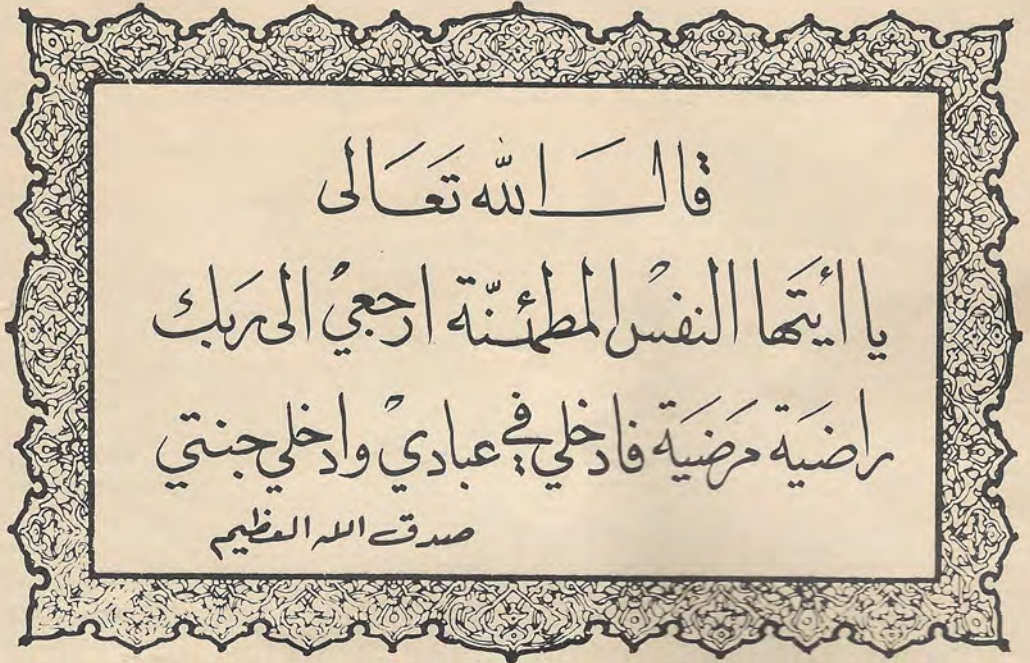 قال الله تعالى
يا ايتها النفس المطمئنة ارجعي الى ربك
راضية مرضية فادخلي في عبادي وادخلي جنتي
صدق الله العظيم